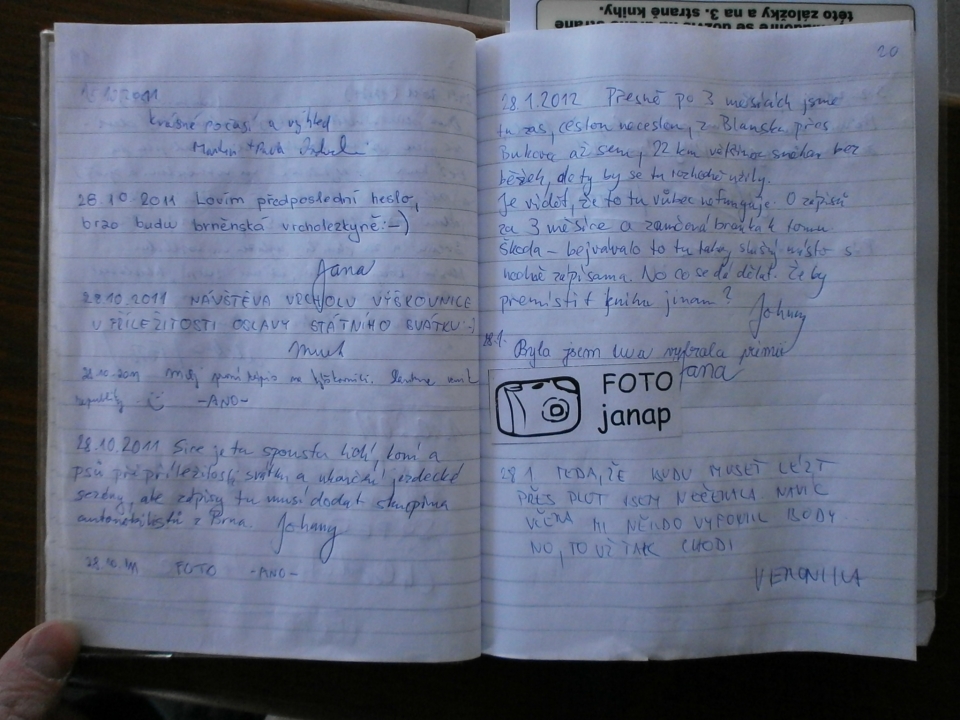 10.2011
Krásné počasí a výhled
Martin + Pavla
28.10.2011 Lovím předposlední heslo,
brzo budu brněnská vrcholezkyně :-)
Jana
28.10.2011 NÁVŠTĚVA VRCHOLU VÝŠKOVNICE
U PŘÍLEŽITOSTI OSLAVY STÁTNÍHO SVÁTKU :-)
28.10.2011 Můj první zápis na
republiky -ANO-
28.10.2011 Sice je tu spousta lidí, koní a
psů při příležitosti svátku a ukončení jezdecké
sezóny, ale zápisy tu musí dodat skupina
automobilistů z Brna. Johany
28.10.2011 FOTO -ANO-
této záložky a na 3. straně knihy.
20
28.1.2012 Přesně po 3 měsících jsme
tu zas, cestou necestou, z Blanska přes
Bukovou až sem, 22 km většinou sněhem bez
běžek, ale ty by se tu rozhodně užily.
Je vidět, že to tu vůbec nefunguje. 0 zápisů
za 3 měsíce a zamčená branka k tomu
Škoda - bejvávalo to tu taky slušný místo s
hodně zápisama. No co se dá dělat. Že by
přemístit knihu jinam?
Johany
28.1. Byla jsem tu a vybrala
Jana
FOTO
janap
28.1. TEDA, ŽE BUDU MUSET LÉZT
PŘES PLOT JSEM NEČEKALA. NAVÍC
VČERA MI NĚKDO VYFOUKL BODY
NO, TO UŽ TAK CHODÍ
VERONIKA